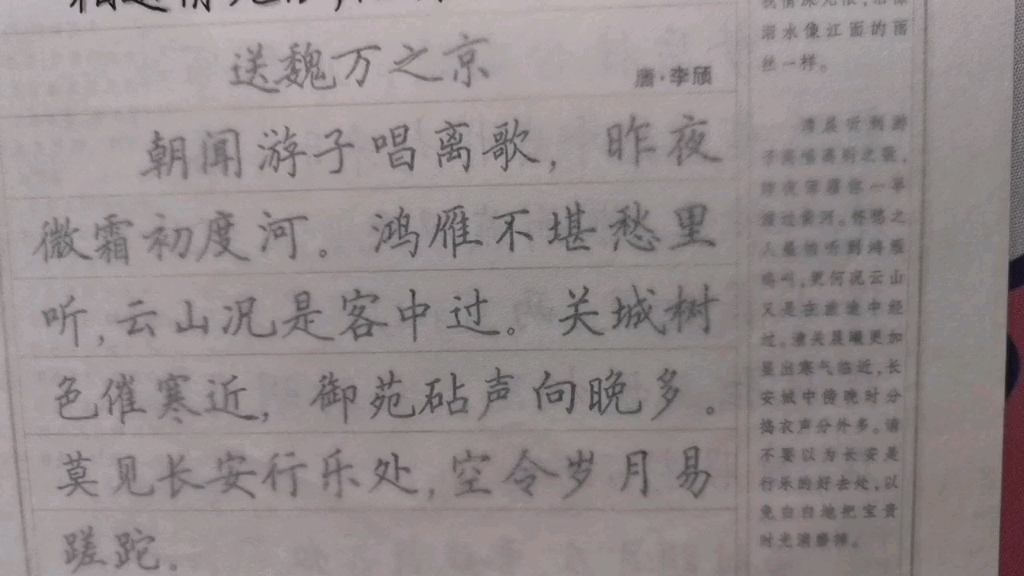 送魏万之京
唐·李颀
朝闻游子唱离歌，昨夜
微霜初度河。鸿雁不堪愁里
听,云山况是客中过。关城树
色催寒近,御苑砧声向晚多。
莫见长安行乐处,空令岁月易
蹉跎。
溶水像江面的雨
丝一样。
清晨听到游
子高唱离别之歌,
昨夜薄霜你一早
渡过黄河。怀愁之
人最怕听到鸿雁
鸣叫,更何况云山
又是在旅途中经
过。潼关晨曦更加
显出寒气临近,长
安城中傍晚时分
捣衣声分外多。请
不要以为长安是
行乐的好去处,以
免白白地把宝贵
时光消磨掉。